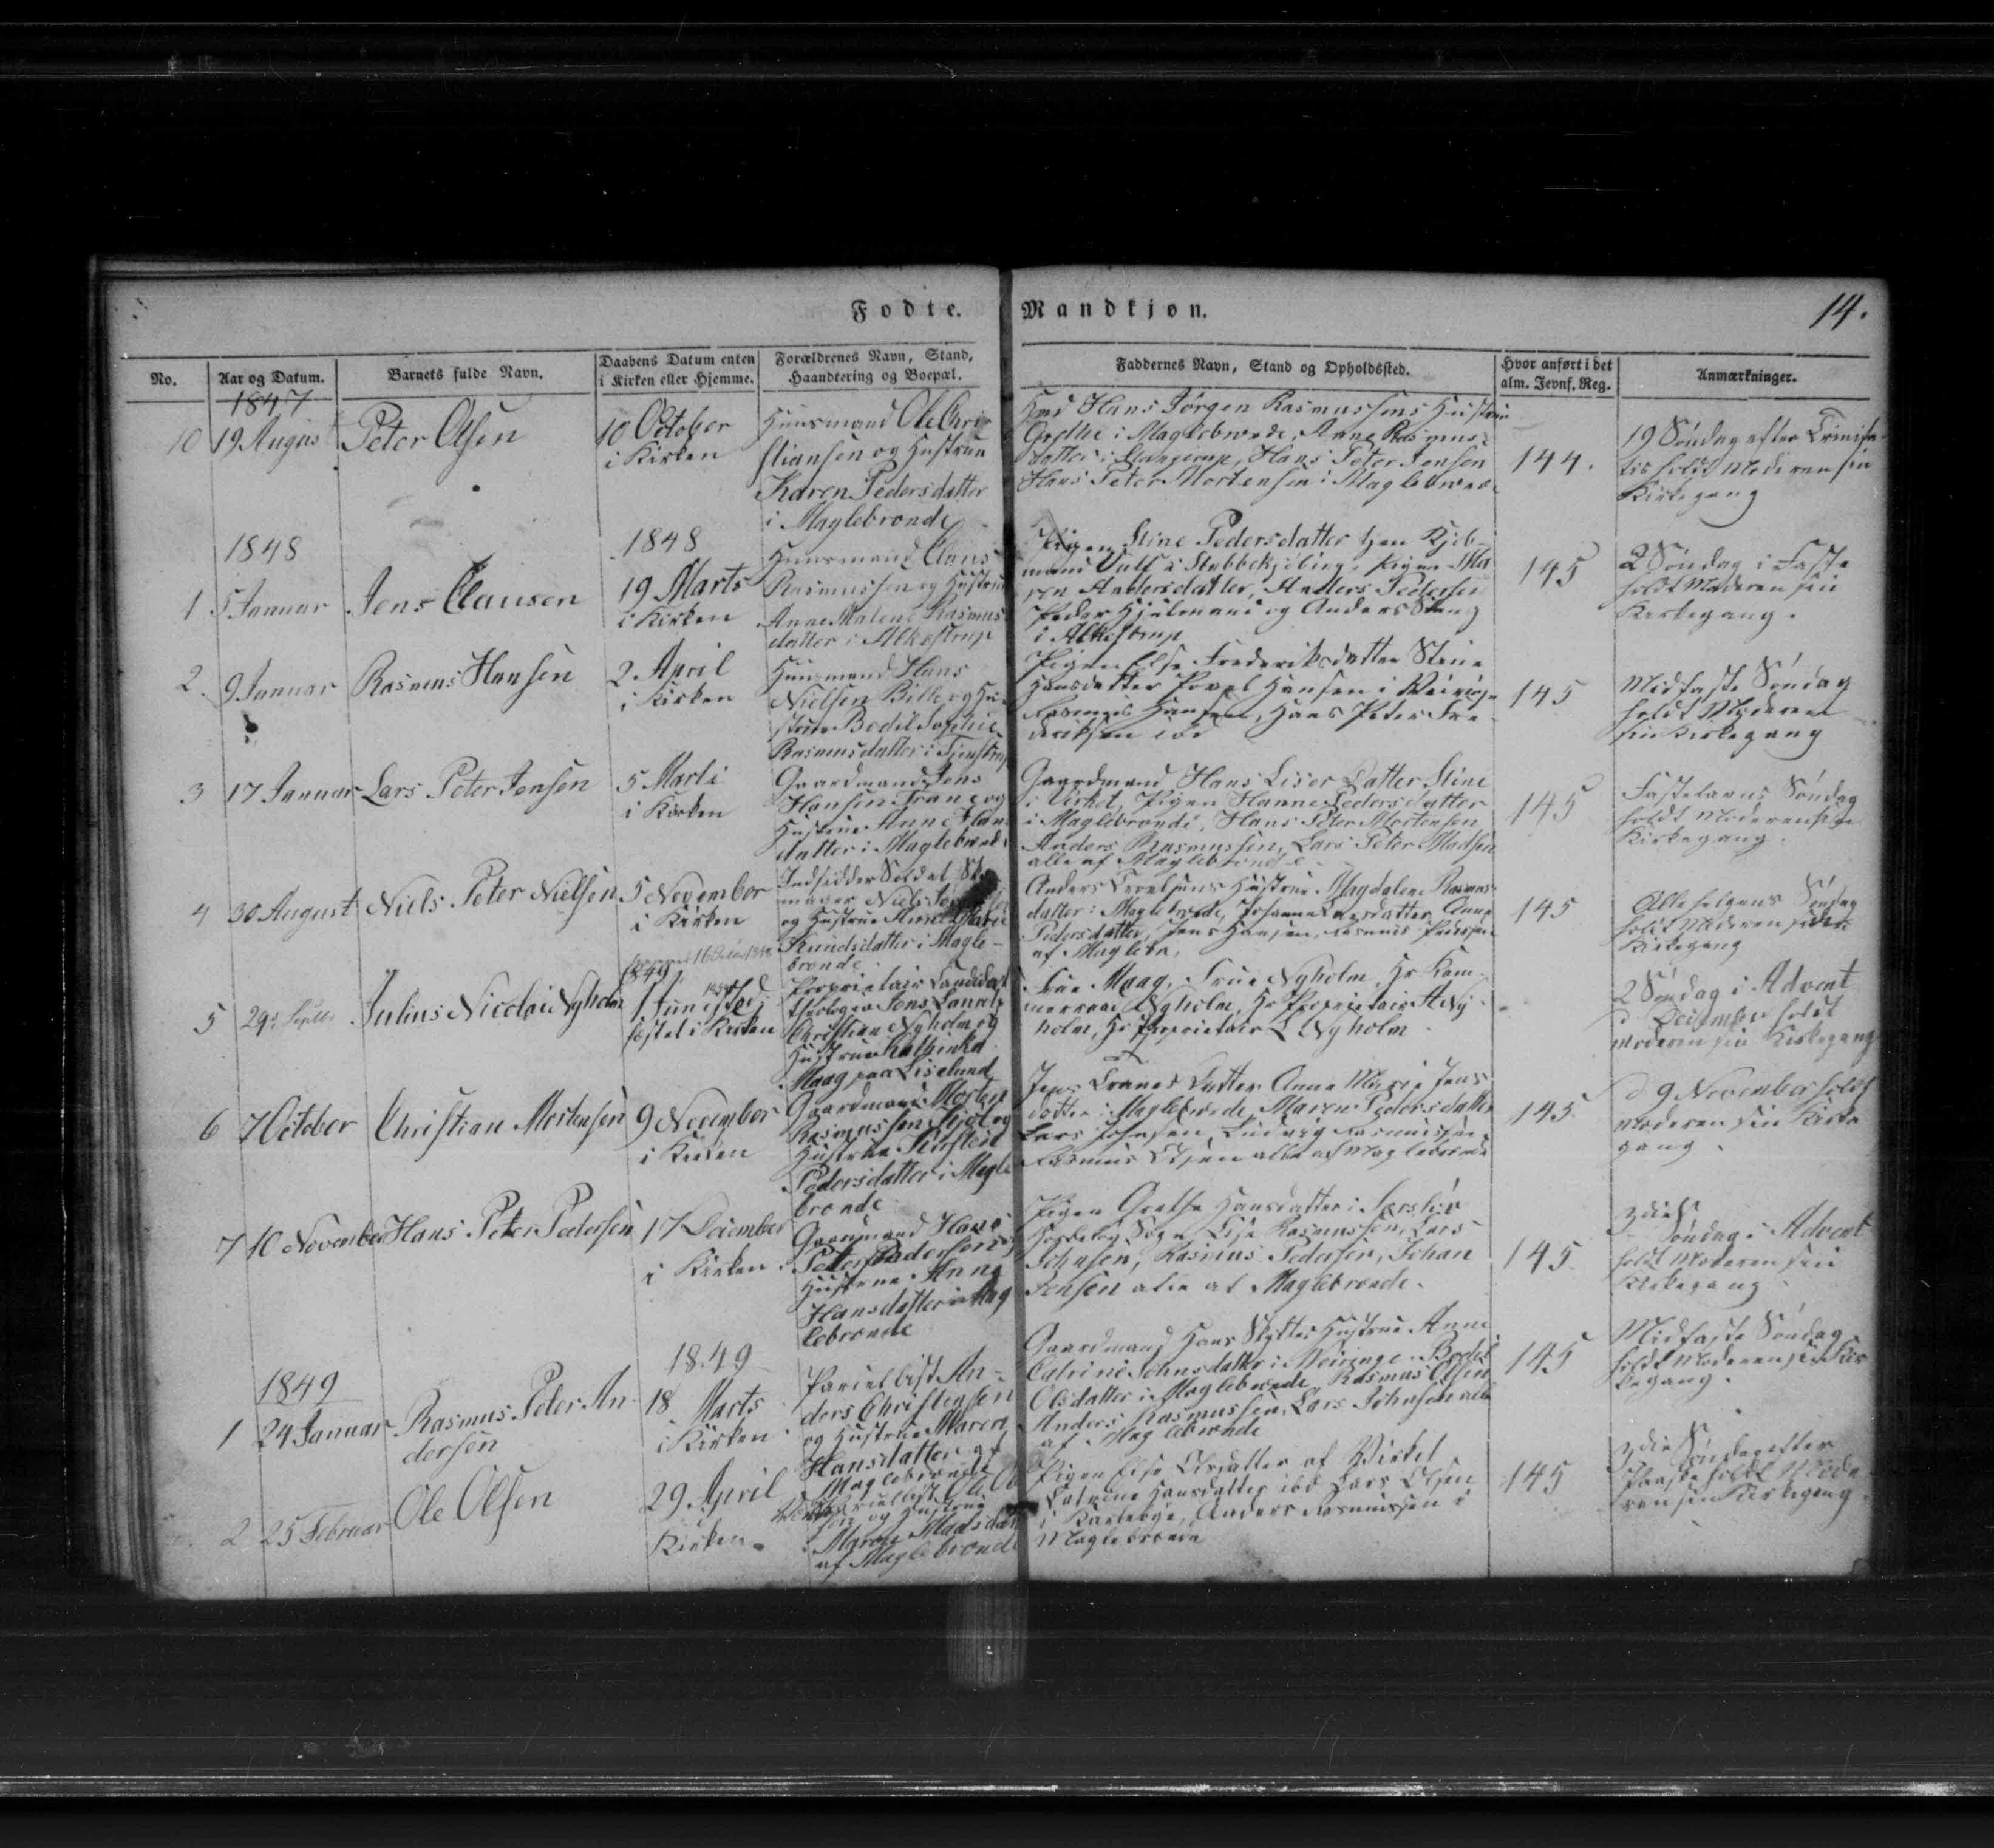 Fødte. Mandkjøn. 14.
No. Aar og Datum. Barnets fulde Navn. Daabens Datum enten i Kirken eller Hjemme. Forældrenes Navn, Stand, Haandtering og Boepæl. Faddernes Navn, Stand og Opholdssted. Hvor anført i det alm. Jevnf. Reg. Anmærkninger.
1847
10 19 August Peter Olsen
10 October
i Kirken
Huusmand Ole Chri-
stiansen og Hustrue
Karen Pedersdatter
i Maglebrænde
Hans Jørgen Rasmussens Hustrue
Grethe i Maglebrænde, Anne Rasmus-
datter i Hans Peter Jensen
Hans Peter Mortensen i Maglebrænde
144.
19 Søndag efter Trinita-
tis holdt Moderen sin
Kirkegang
1848
1 5 Januar Jens Clausen
1848
19 Marts
i Kirken
Huusmand Claus
Rasmussen og Hustrue
Anne Malene Rasmus-
datter i Alkestrup
Pigen Stine Pedersdatter hen Kjøb-
mand i Stubbekjøbing, Pigen Ma-
ren Andersdatter, Anders Pedersen
Peder og Anders
i Alkestrup
145
2 Søndag i Faste
holdt Moderen sin
Kirkegang.
2. 9 Januar Rasmus Hansen
2 April
i Kirken
Huusmand Hans
Nielsen Bille og Hu-
strue Bodil Sophie
Rasmusdatter i
Pigen Else Frederiksdatter Stine
Hansdatter Povel Hansen i
Rasmus Hansen, Hans Peter Fre-
deriksen ibd
145
Midfaste Søndag
holdt Moderen
sin Kirkegang
3 17 Januar Lars Peter Jensen
5 Marts
i Kirken
Gaardmand Jens
Hansen Trane og
Hustrue Anne Hans-
datter i Maglebrænde
Gaardmand Hans Datter Stine
i Virket, Pigen Hanne Pedersdatter
i Maglebrænde, Hans Peter Mortensen
Anders Rasmussen, Lars Peter Madsen
alle af Maglebrænde
145
Fastelavns Søndag
holdt Moderen sin
Kirkegang.
4 30 August Niels Peter Nielsen
5 November
i Kirken
Indsidder Soldat
Niels
og Hustrue Anne Marie
Knudsdatter i Magle-
brænde
Anders Hustrue Magdalene Rasmus-
datter i Maglebrænde, Johanne Larsdatter Anne
Pedersdatter, Jens Hansen, Rasmus Pedersen
af Maglebr.
145
Alle helgens Søndag
holdt Moderen sin
Kirkegang
5 29. Septbr. Julius Nicolai Nyholm
1849
1 Juni
i Kirken
Proprietair Candidat
theologia Jens Laurits
Christian Nyholm og
Hustrue Kathinka
Maag paa Liselund
Frue Maag, Frue Nyholm, Hr Kam-
merraad Nyholm, Hr Proprietair A Ny-
holm, Hr Proprietair L Nyholm
2 Søndag i Advent
December holdt
Moderen sin Kirkegang
6 7 October Christian Mortensen
9 November
i Kirken
Gaardmand Morten
Rasmussen og
Hustrue Kirsten
Pedersdatter i Magle-
brænde
Jens Tranes Datter Anne Marie Jens-
datter i Maglebrænde, Maren Pedersdatter
Lars Johnsen, Ludvig Rasmussen,
Rasmus Olsen alle af Maglebrænde
145
d 9 November holdt
Moderen sin Kirke-
gang.
7 10 November Hans Peter Pedersen
17 December
i Kirken
Gaardmand Hans
Peter Pedersen
Hustrue Anne
Hansdatter i Mag-
lebrænde
Pigen Grethe Hansdatter i
Sogn, Lise Rasmussen, Lars
Johnsen, Rasmus Pedersen, Johan
Jensen alle af Maglebrænde.
145.
3die
Søndag i Advent
holdt Moderen sin
Kirkegang
1849
1 24 Januar Rasmus Peter An-
dersen
1849
18 Marts
i Kirken
Parcellist An-
ders Christensen
og Hustrue Maren
Hansdatter af
Maglebrænde
Gaardmand Hans Skyttes Hustrue Anne
Catrine Johnsdatter i Bodil
Olsdatter i Maglebrænde, Rasmus Olsen
Anders Rasmussen, Lars Johnsen alle
af Maglebrænde
145
Midfaste Søndag
holdt Moderen sin Kir-
kegang.
2 25 Februar Ole Olsen
29 April
Kirken
Parcellist Ole
og Hustrue
Maren Madsdatter
af Maglebrænde
Pigen Else Olsdatter af Virket
Catrine Hansdatter ibd Lars Olsen
i Anders Rasmussen i
Maglebrænde
145
3die Søndag efter
Paaske holdt Mode-
ren sin Kirkegang.